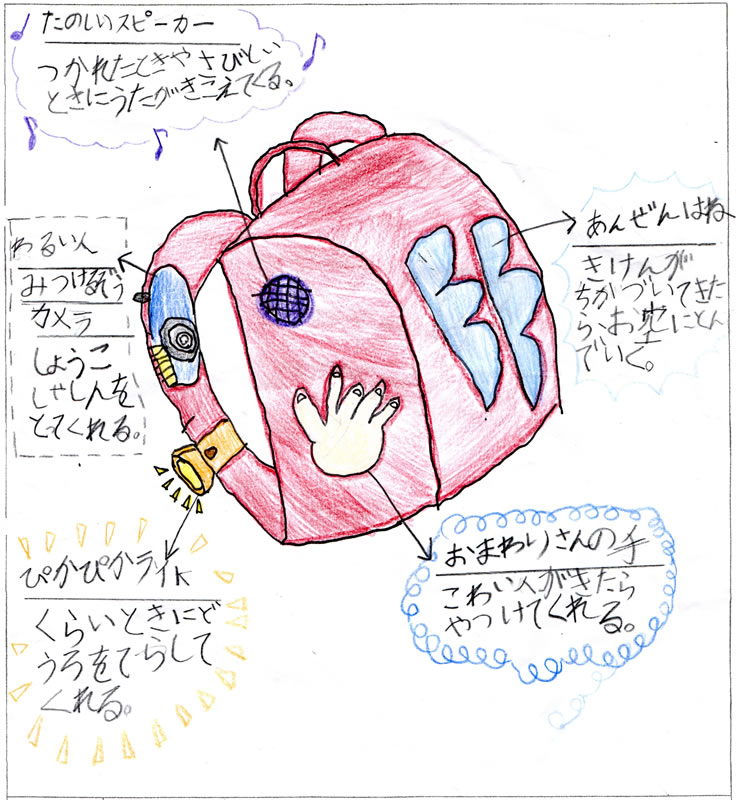 たのしいスピーカー
つかれたときやさびしい
ときにうたがきこえてくる。
わるい人
みつけるぞう
カメラ
しょうこ
しゃしんを
とてくれる。
あんぜんはね
きけんが
ちかづいてきた
らお空にとん
でいく。
ぴかぴかライト
くらいときにど
うろをてらして
くれる。
おまわりさんの手
こわい人がきたら
やつけてくれる。